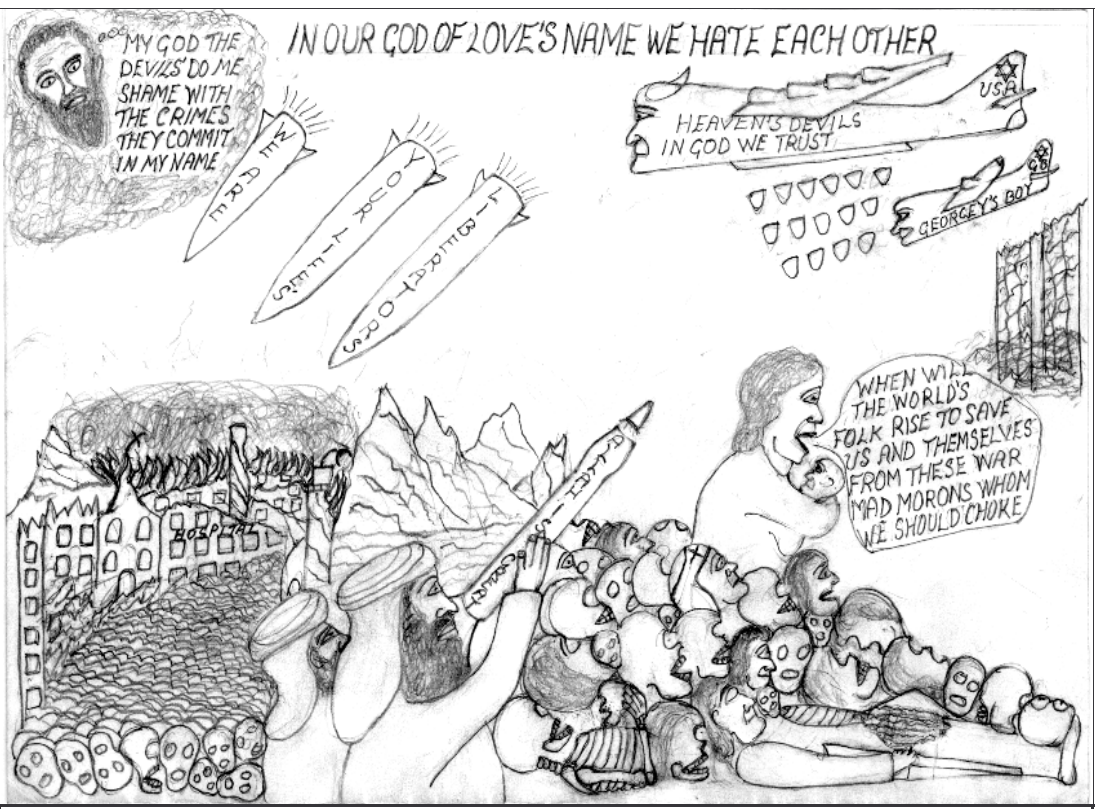 IN OUR GOD OF LOVE'S NAME WE HATE EACH OTHER
MY GOD THE
DEVILS DO ME
SHAME WITH
THE CRIMES
THEY COMMIT
IN MY NAME
WE ARE
YOUR LIFES
LIBERATORS
USA
HEAVEN'S DEVILS
IN GOD WE TRUST
GB
GEORGEY'S BOY
WHEN WILL
THE WORLD'S
FOLK RISE TO SAVE
US AND THEMSELVES
FROM THESE WAR
MAD MORONS WHOM
WE SHOULD CHOKE
ALLAH IS
GREAT
HOSPITAL